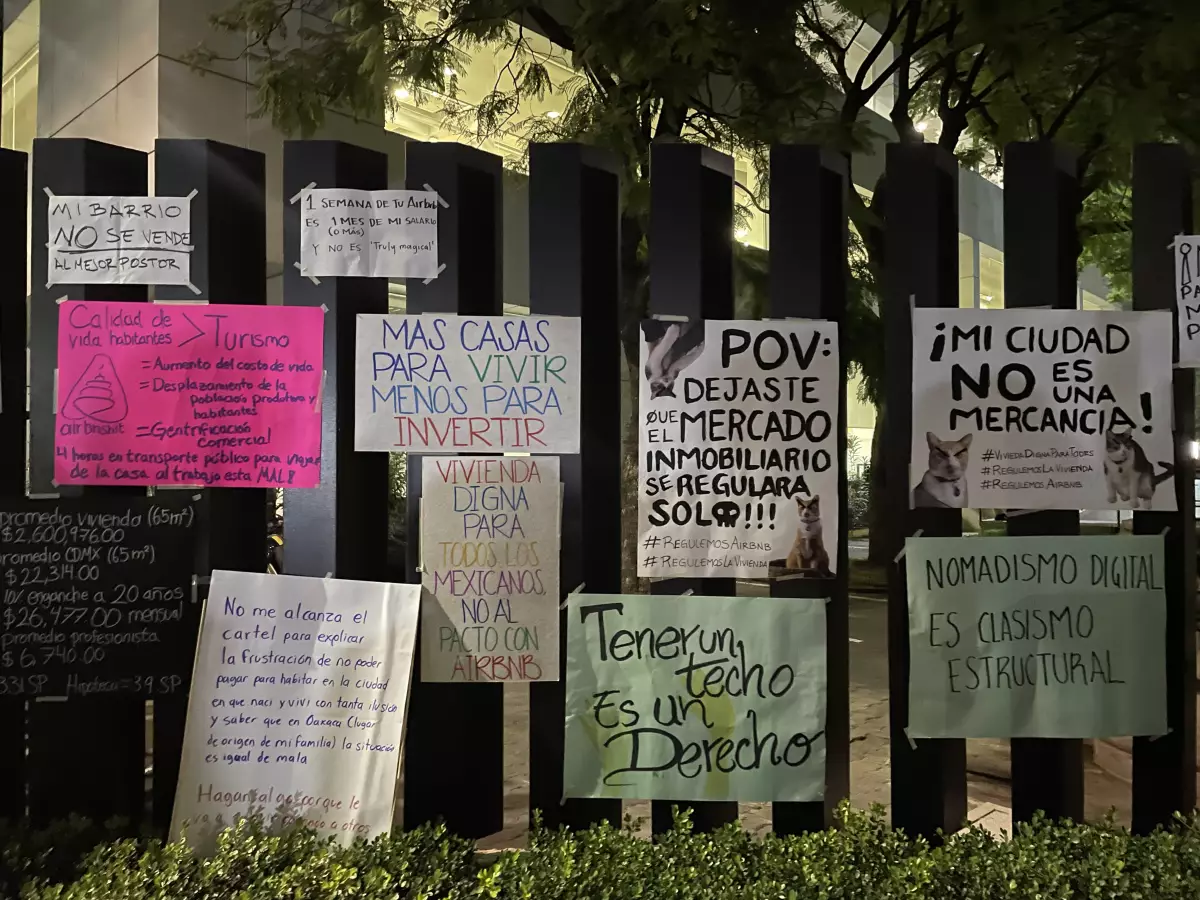 MI BARRIO
NO SE VENDE
AL MEJOR POSTOR
1 SEMANA DE TU Airbnb
ES 1 MES DE MI SALARIO
(O MÁS)
Y NO ES "Truly magical"
Calidad de
vida habitantes > Turismo
= Aumento del costo de vida
= Desplazamiento de la
población productora y
habitantes
= Gentrificación
comercial
airbnshit
4 horas en transporte público para viajar
de la casa al trabajo esta MAL!
MAS CASAS
PARA VIVIR
MENOS PARA
INVERTIR
POV:
DEJASTE
QUE MERCADO
EL
INMOBILIARIO
SE REGULARA
SOLO!!!
#REGULEMOSAIRBNB
#REGULEMOSLAVIVIENDA
¡MI CIUDAD
NO ES
UNA
MERCANCIA!
#VIVIEDADIGNAPARATODXS
#REGULEMOSLAVIVIENDA
#REGULEMOSAIRBNB
VIVIENDA
DIGNA
PARA
TODOS LOS
MEXICANOS,
NO AL
PACTO CON
AIRBNB
promedio vivienda (65m²)
$2,600,976.00
promedio CDMX (65m²)
$22,314.00
10% enganche a 20 años
$26,477.00 mensual
promedio profesionista
$6,740.00
331 SP Hipoteca = 39 SP
No me alcanza el
cartel para explicar
la frustración de no poder
pagar para habitar en la ciudad
en que nací y viví con tanta ilusión
y saber que en Oaxaca (lugar
de origen de mi familia) la situación
es igual de mala
Hagan algo porque le
a otros
Tener un
techo
Es un
Derecho
NOMADISMO DIGITAL
ES CLASISMO
ESTRUCTURAL